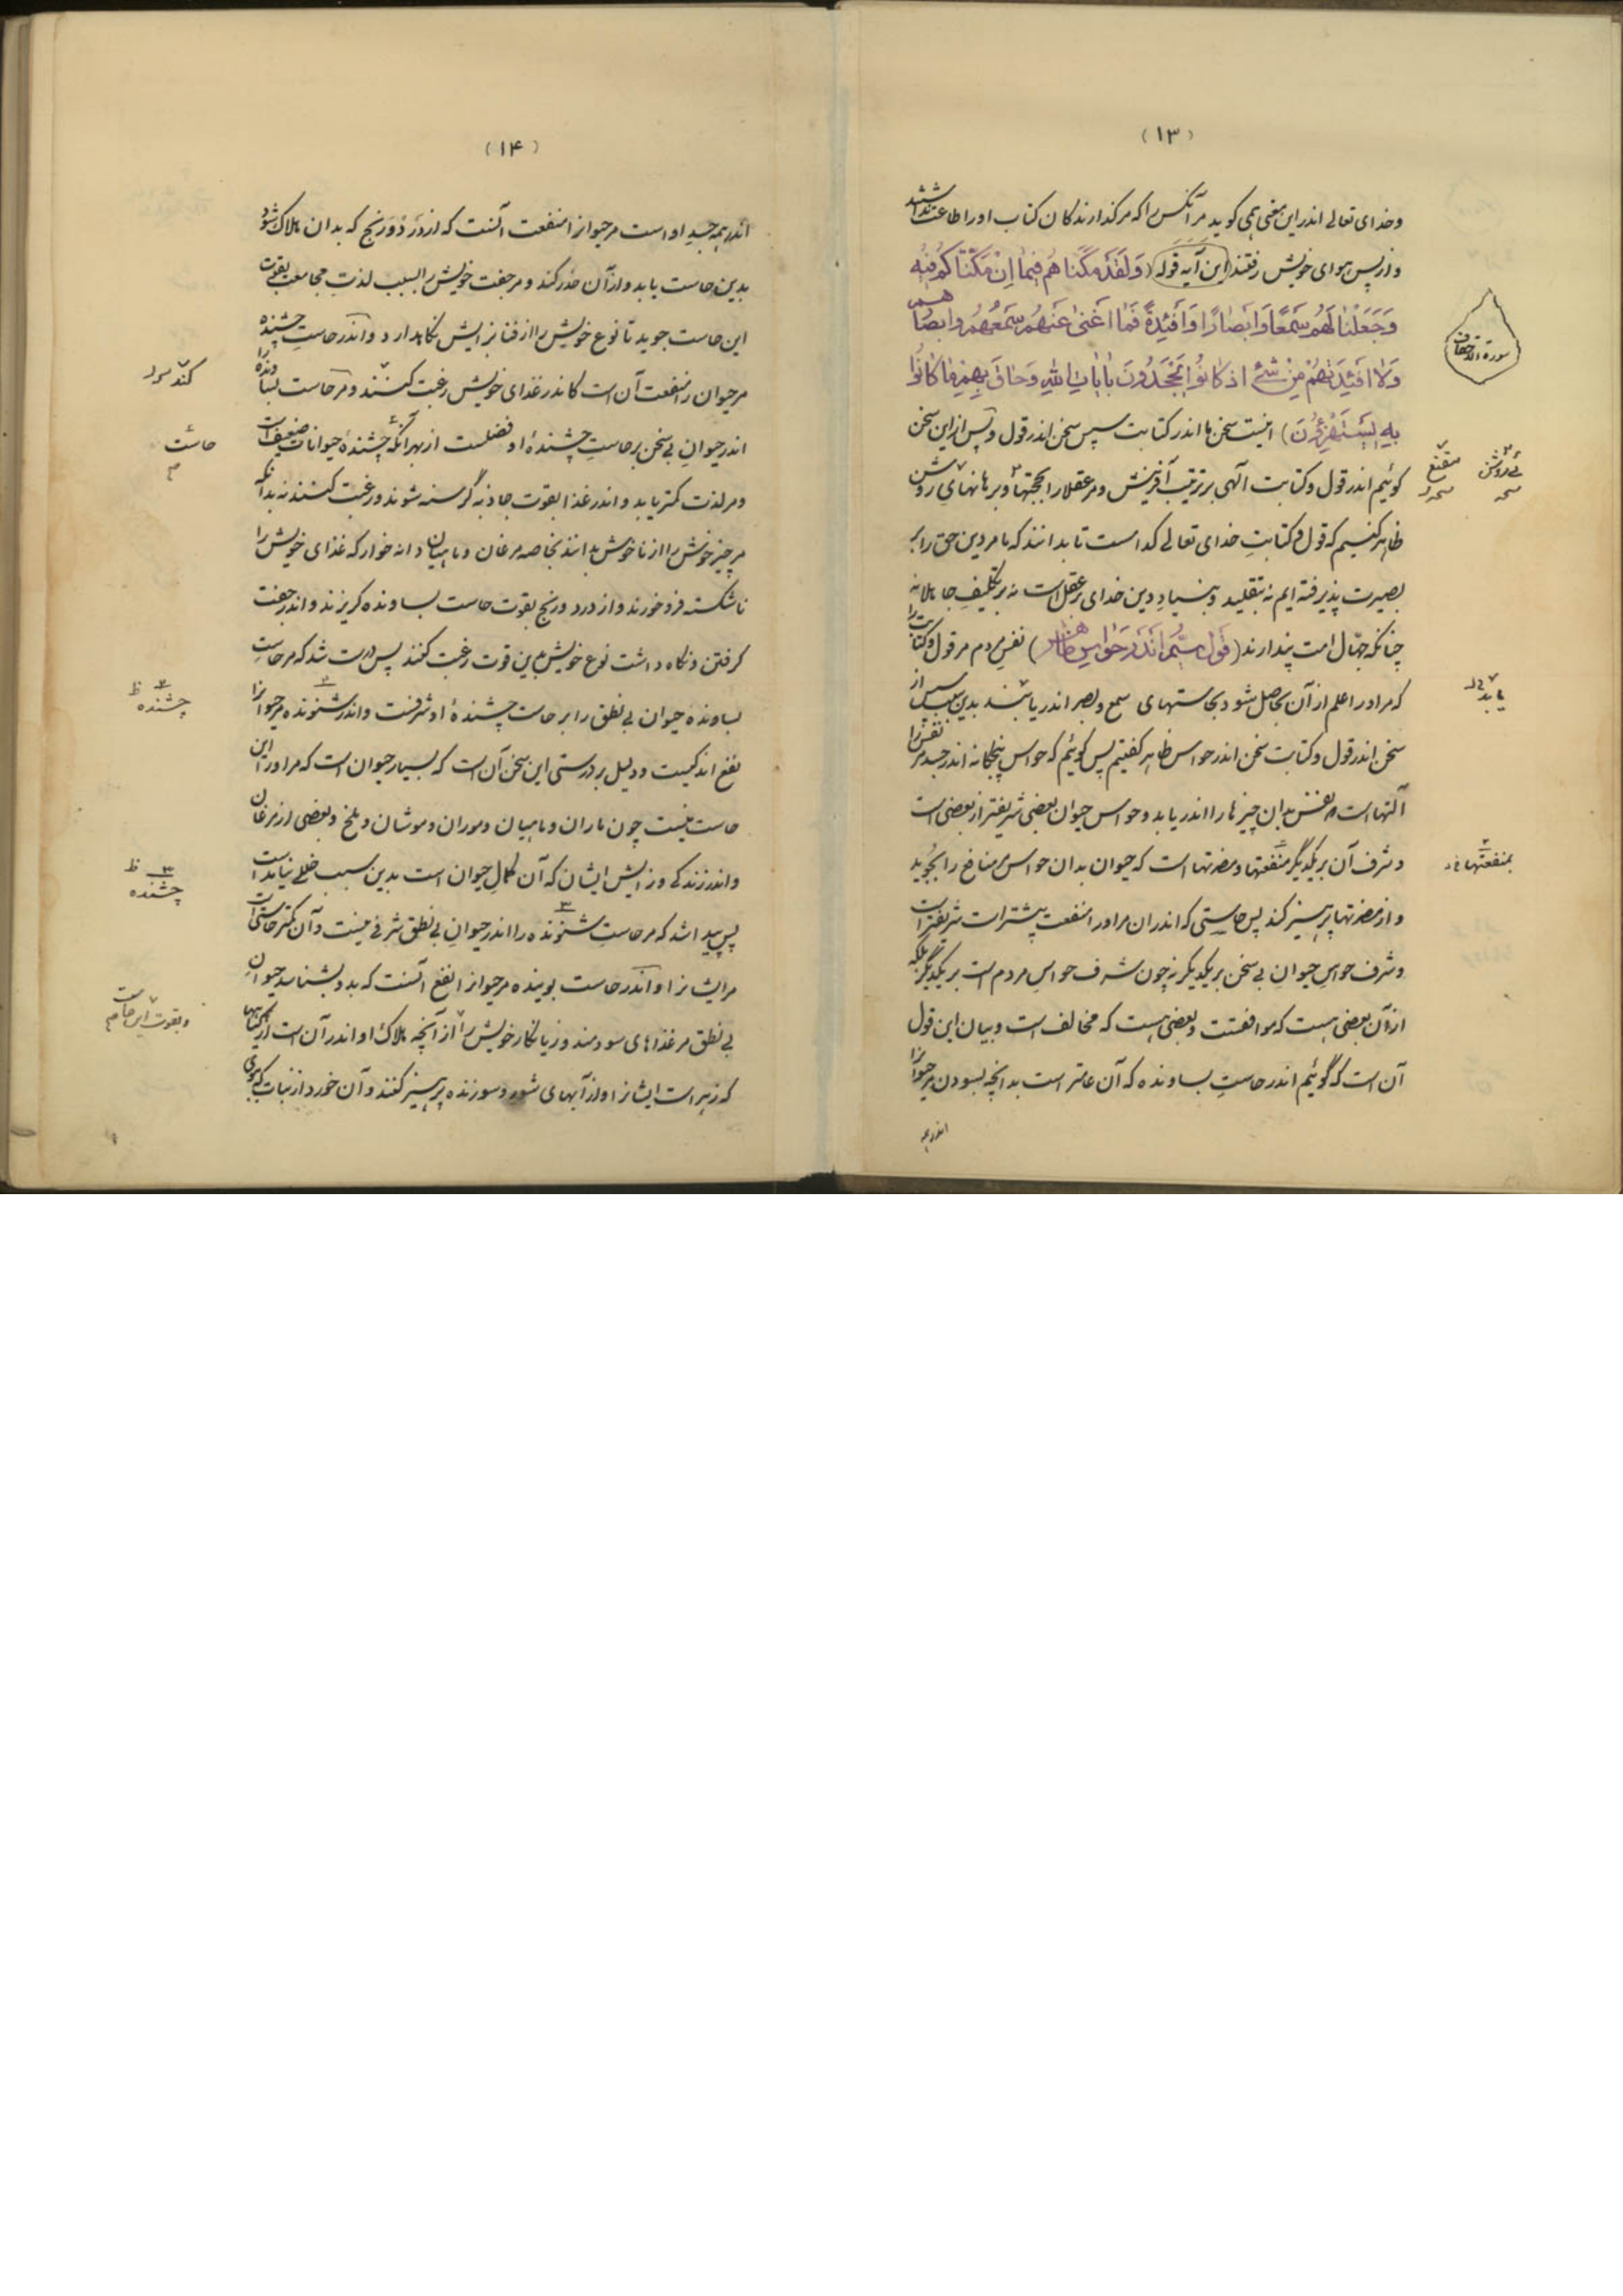 (۱۳)
وخدای تعالی اندر این معنی همی کوید مر آنکس را که مر کذارندکان کتاب اورا طاعت نداشتند
واز پس هوای خویش رفتند این آیه قوله (وَلَقَدْ مَكَّنَّاهُمْ فِيمَا اِنْ مَكَّنَّاكُمْ فِيهِ
وَجَعَلْنَا لَهُمْ سَمْعًا وَاَبْصَارًا وَاَفْئِدَةً فَمَا اَغْنىٰ عَنْهُمْ سَمْعُهُمْ وَلَا اَبْصَارُهُمْ
وَلَا اَفْئِدَتُهُمْ مِنْ شَیْءٍ اِذْ كَانُوا يَجْحَدُونَ بِآيَاتِ اللهِ وَحَاقَ بِهِمْ مَا كَانُوا
بِهِ يَسْتَهْزِؤُنَ) اینست سخن ما اندر کتابت سپس سخن اندر قول و پس از این سخن
کوئیم اندر قول وکتابت آلهی بر ترتیب آفرینش و مر عقلا را بحجتها و برهانهای روشن
ظاهر کنیم که قول و کتابتِ خدای تعالی کدامست تا بدانند که ما مر دین حق را بر
بصیرت پذیرفته ایم نه بتقلید وبنیادِ دین خدای بر عقل است نه بر تکلیفِ جاهلانه
چنانکه جهّال امت پندارند (قول سیّم اندر حواس ظاهر) نفس مردم مر قول و کتابت را
که مر اورا علم از آن بحاصل شود بحاستهای سمع و بصر اندر یابند بدین سبب سپس از
سخن اندر قول وکتابت سخن اندر حواس ظاهر کفتیم پس کوئیم که حواس پنجکانه اندر جسد مر نفس را
آلتها است که نفس بدان چیزها را اندر یابد وحواس حیوان بعضی شریفتر از بعضی است
وشرف آن بر یکدیگر منفعتها ومضرتها است که حیوان بدان حواس منافع را بجوید
و از مضرتها پرهیز کند پس حاستی که اندر ان مر اورا منفعت بیشتر است شریفتر است
وشرف حواسِ حیوانِ بی سخن بر یکدیکر نه چون شرف حواسِ مردم است بر یکدیگر بلکه
از آن بعضی هست که موافقست وبعضی هست که مخالف است وبیان این قول
آن است که گوئیم اندر حاستِ بساونده که آن عامتر است بدانچه بسودن مر حیوانرا
اندر همه
سورة الاحقاف
مقنع
روشن
یابد
بمنفعتها
(۱۴)
اندر همه جسد او است مر حیوانرا منفعت آنست که از درد و رنج که بدان هلاک شود
بدین حاست یابد و از آن حذر کند و مر جفت خویش را بسبب لذتِ مجامعت بقوت
این حاست جوید تا نوع خویش را از فنا بزایش نکاهدارد واندر حاستِ چشنده
مر حیوان را منفعت آن است کاندر غذای خویش رغبت کنند ومر حاست بساونده را
اندر حیوانِ بی سخن بر حاستِ چشندهٔ او فضلست از بهر آنکه چشندهٔ حیوانات ضعیف است
ومر لذت کمتر یابد واندر غذا بقوت جاذبه گرسنه شوند ورغبت کنند نه بدانکه
مر چیز خوش را از ناخوش بدانند بخاصه مرغان وماهیان دانه خوار که غذای خویش را
ناشکسته فرو خورند و از درد ورنج بقوت حاست بساونده کریزند واندر جفت
کرفتن ونکاه داشت نوع خویش بدین قوت رغبت کنند پس درست شد که مر حاستِ
بساوندهٔ حیوان بی نطق را بر حاست چشندهٔ او شرفست واندر شنونده مر حیوانرا
نفع اندکیست ودلیل بر درستی این سخن آن است که بسیار حیوان است که مر اورا این
حاست نیست چون ماران وماهیان وموران وموشان وملخ وبعضی از مرغان
واندر زندکی وزایش ایشان که آن کمالِ حیوان است بدین سبب خللی نیامده است
پس پیدا شد که مر حاستِ شنونده را اندر حیوانِ بی نطق شرفی نیست وآن کمتر حاستی است
مر ایشانرا واندر حاست بوینده مر حیوانرا نفع آنست که بدو بشناسد حیوانِ
بی نطق مر غذاهای سودمند و زیانکار خویش را از آنچه هلاک او اندر آن است از کیاهها
که زهر است ایشانرا و از آبهای شور وسوزنده پرهیز کنند وآن خورد از نبات که بوی
کنند
حاست
چشنده ظ
چشنده ظ
وبقوت این حاست